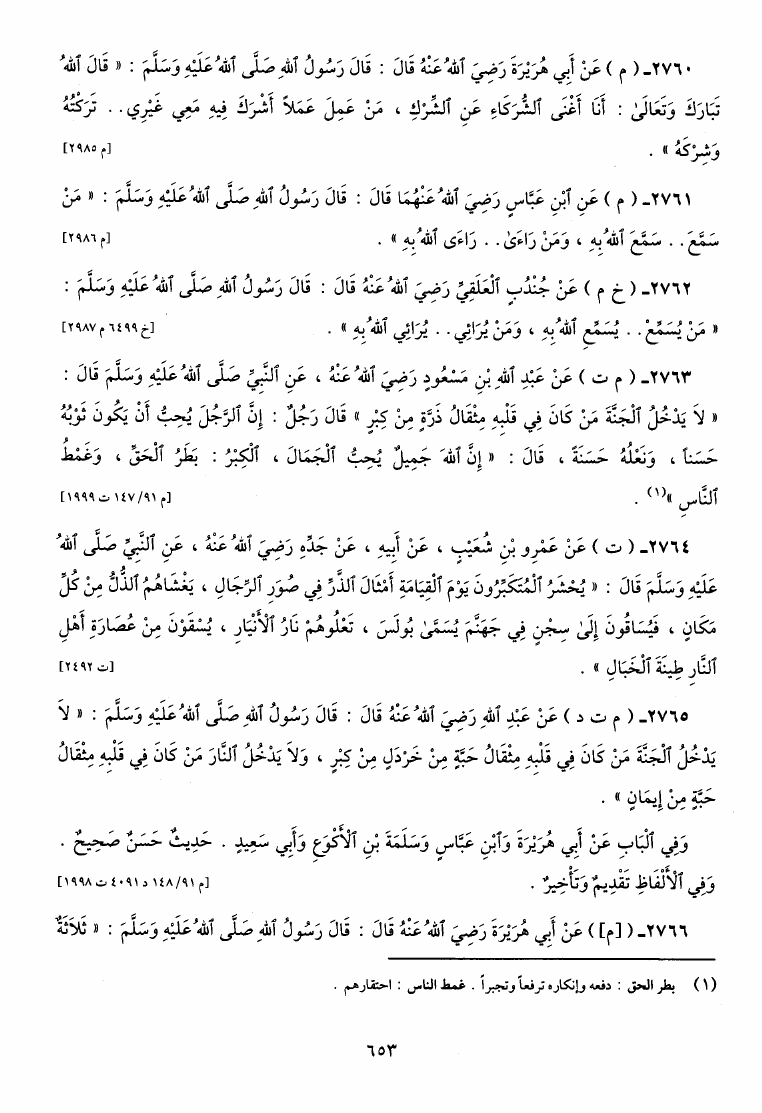 ٢٧٦٠ـ ( م ) عَنْ أَبِي هُرَيْرَةَ رَضِيَ ٱللهُ عَنْهُ قَالَ : قَالَ رَسُولُ ٱللهِ صَلَّى ٱللهُ عَلَيْهِ وَسَلَّمَ : « قَالَ ٱللهُ
تَبَارَكَ وَتَعَالَىٰ : أَنَا أَغْنَى ٱلشُّرَكَاءِ عَنِ ٱلشِّرْكِ ، مَنْ عَمِلَ عَمَلاً أَشْرَكَ فِيهِ مَعِي غَيْرِي . . تَرَكْتُهُ
وَشِرْكَهُ » . [م ٢٩٨٥]
٢٧٦١ـ ( م ) عَنِ ٱبْنِ عَبَّاسٍ رَضِيَ ٱللهُ عَنْهُمَا قَالَ : قَالَ رَسُولُ ٱللهِ صَلَّى ٱللهُ عَلَيْهِ وَسَلَّمَ : « مَنْ
سَمَّعَ . . سَمَّعَ ٱللهُ بِهِ ، وَمَنْ رَاءَىٰ . . رَاءَى ٱللهُ بِهِ » . [م ٢٩٨٦]
٢٧٦٢ـ ( خ م ) عَنْ جُنْدُبٍ ٱلْعَلَقِيِّ رَضِيَ ٱللهُ عَنْهُ قَالَ : قَالَ رَسُولُ ٱللهِ صَلَّى ٱللهُ عَلَيْهِ وَسَلَّمَ :
« مَنْ يُسَمِّعْ . . يُسَمِّعِ ٱللهُ بِهِ ، وَمَنْ يُرَائِي . . يُرَائِي ٱللهُ بِهِ » . [خ ٦٤٩٩ م ٢٩٨٧]
٢٧٦٣ـ ( م ت ) عَنْ عَبْدِ ٱللهِ بْنِ مَسْعُودٍ رَضِيَ ٱللهُ عَنْهُ ، عَنِ ٱلنَّبِيِّ صَلَّى ٱللهُ عَلَيْهِ وَسَلَّمَ قَالَ :
« لاَ يَدْخُلُ ٱلْجَنَّةَ مَنْ كَانَ فِي قَلْبِهِ مِثْقَالُ ذَرَّةٍ مِنْ كِبْرٍ » قَالَ رَجُلٌ : إِنَّ ٱلرَّجُلَ يُحِبُّ أَنْ يَكُونَ ثَوْبُهُ
حَسَناً ، وَنَعْلُهُ حَسَنَةً ، قَالَ : « إِنَّ ٱللهَ جَمِيلٌ يُحِبُّ ٱلْجَمَالَ ، ٱلْكِبْرُ : بَطَرُ ٱلْحَقِّ ، وَغَمْطُ
ٱلنَّاسِ »(١) . [م ١٤٧/٩١ ت ١٩٩٩]
٢٧٦٤ـ ( ت ) عَنْ عَمْرِو بْنِ شُعَيْبٍ ، عَنْ أَبِيهِ ، عَنْ جَدِّهِ رَضِيَ ٱللهُ عَنْهُ ، عَنِ ٱلنَّبِيِّ صَلَّى ٱللهُ
عَلَيْهِ وَسَلَّمَ قَالَ : « يُحْشَرُ ٱلْمُتَكَبِّرُونَ يَوْمَ ٱلْقِيَامَةِ أَمْثَالَ ٱلذَّرِّ فِي صُوَرِ ٱلرِّجَالِ ، يَغْشَاهُمُ ٱلذُّلُّ مِنْ كُلِّ
مَكَانٍ ، فَيُسَاقُونَ إِلَىٰ سِجْنٍ فِي جَهَنَّمَ يُسَمَّىٰ بُولَسَ ، تَعْلُوهُمْ نَارُ ٱلأَنْيَارِ ، يُسْقَوْنَ مِنْ عُصَارَةِ أَهْلِ
ٱلنَّارِ طِينَةَ ٱلْخَبَالِ » . [ت ٢٤٩٢]
٢٧٦٥ـ ( م ت د ) عَنْ عَبْدِ ٱللهِ رَضِيَ ٱللهُ عَنْهُ قَالَ : قَالَ رَسُولُ ٱللهِ صَلَّى ٱللهُ عَلَيْهِ وَسَلَّمَ : « لاَ
يَدْخُلُ ٱلْجَنَّةَ مَنْ كَانَ فِي قَلْبِهِ مِثْقَالُ حَبَّةٍ مِنْ خَرْدَلٍ مِنْ كِبْرٍ ، وَلاَ يَدْخُلُ ٱلنَّارَ مَنْ كَانَ فِي قَلْبِهِ مِثْقَالُ
حَبَّةٍ مِنْ إِيمَانٍ » .
وَفِي ٱلْبَابِ عَنْ أَبِي هُرَيْرَةَ وَٱبْنِ عَبَّاسٍ وَسَلَمَةَ بْنِ ٱلأَكْوَعِ وَأَبِي سَعِيدٍ . حَدِيثٌ حَسَنٌ صَحِيحٌ .
وَفِي ٱلأَلْفَاظِ تَقْدِيمٌ وَتَأْخِيرٌ . [م ١٤٨/٩١ د ٤٠٩١ ت ١٩٩٨]
٢٧٦٦ـ ( [م] ) عَنْ أَبِي هُرَيْرَةَ رَضِيَ ٱللهُ عَنْهُ قَالَ : قَالَ رَسُولُ ٱللهِ صَلَّى ٱللهُ عَلَيْهِ وَسَلَّمَ : « ثَلاَثَةٌ
(١) بطر الحق : دفعه وإنكاره ترفعاً وتجبراً . غمط الناس : احتقارهم .
٦٥٣